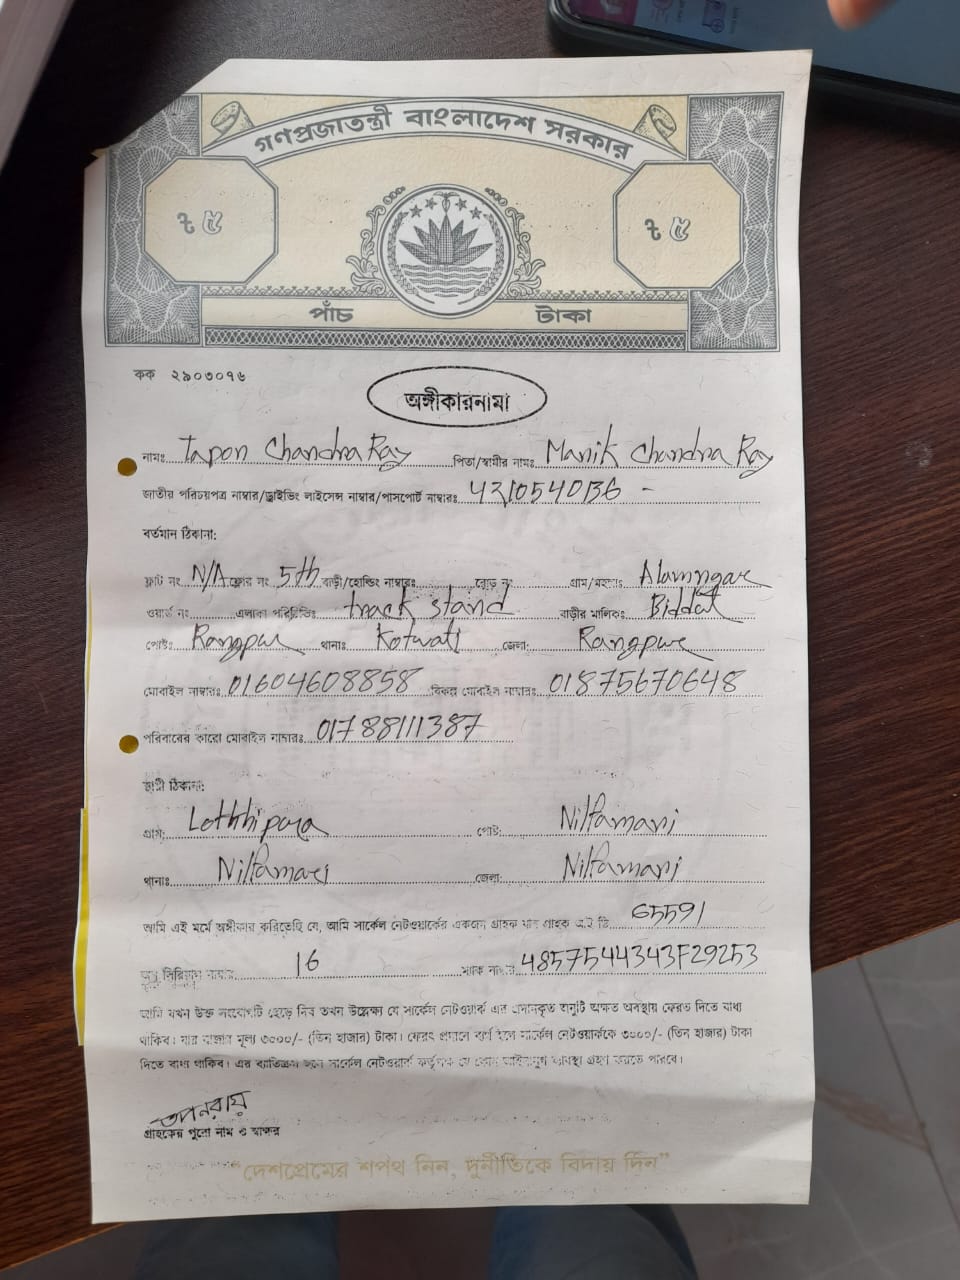 গণপ্রজাতন্ত্রী বাংলাদেশ সরকার
৳ ৫ ৳ ৫
পাঁচ টাকা
কক ২৯০৩০৭৬
অঙ্গীকারনামা
নামঃ Tapon Chandra Ray পিতা/স্বামীর নামঃ Manik Chandra Ray
জাতীয় পরিচয়পত্র নাম্বার/ড্রাইভিং লাইসেন্স নাম্বার/পাসপোর্ট নাম্বারঃ
বর্তমান ঠিকানা:
ফ্লাট নং N/A ফ্লোর নং 5th বাড়ী/হোল্ডিং নাম্বারঃ রোড নং গ্রাম/মহল্লাঃ
ওয়ার্ড নং এলাকা পরিচিতিঃ track stand বাড়ীর মালিকঃ
পোষ্টঃ Rangpur থানাঃ Kotwali জেলা: Rangpur
মোবাইল নাম্বারঃ 01604608858 বিকল্প মোবাইল নাম্বারঃ 01875670648
পরিবারের কারো মোবাইল নাম্বারঃ 01788111387
স্থায়ী ঠিকানা:
গ্রাম: পোষ্ট: Nilfamari
থানাঃ Nilfamari জেলা: Nilfamari
আমি এই মর্মে অঙ্গীকার করিতেছি যে, আমি সার্কেল নেটওয়ার্কের একজন গ্রাহক যার গ্রাহক আই ডি 65591
অনু সিরিয়াল নাম্বার 16 ম্যাক নাম্বার 4857544343F29253
আমি যখন উক্ত সংযোগটি ছেড়ে দিব তখন উল্লেক্ষ্য যে সার্কেল নেটওয়ার্ক এর প্রদানকৃত অনুটি অক্ষত অবস্থায় ফেরত দিতে বাধ্য
থাকিব। যার বাজার মূল্য ৩০০০/- (তিন হাজার) টাকা। ফেরৎ প্রদানে ব্যর্থ হলে সার্কেল নেটওয়ার্ককে ৩০০০/- (তিন হাজার) টাকা
দিতে বাধ্য থাকিব। এর ব্যতিক্রম হলে সার্কেল নেটওয়ার্ক কর্তৃপক্ষ যে কোন আইনানুগ ব্যবস্থা গ্রহণ করতে পারবে।
তপন রায়
গ্রাহকের পুরো নাম ও স্বাক্ষর
“দেশপ্রেমের শপথ নিন, দুর্নীতিকে বিদায় দিন”